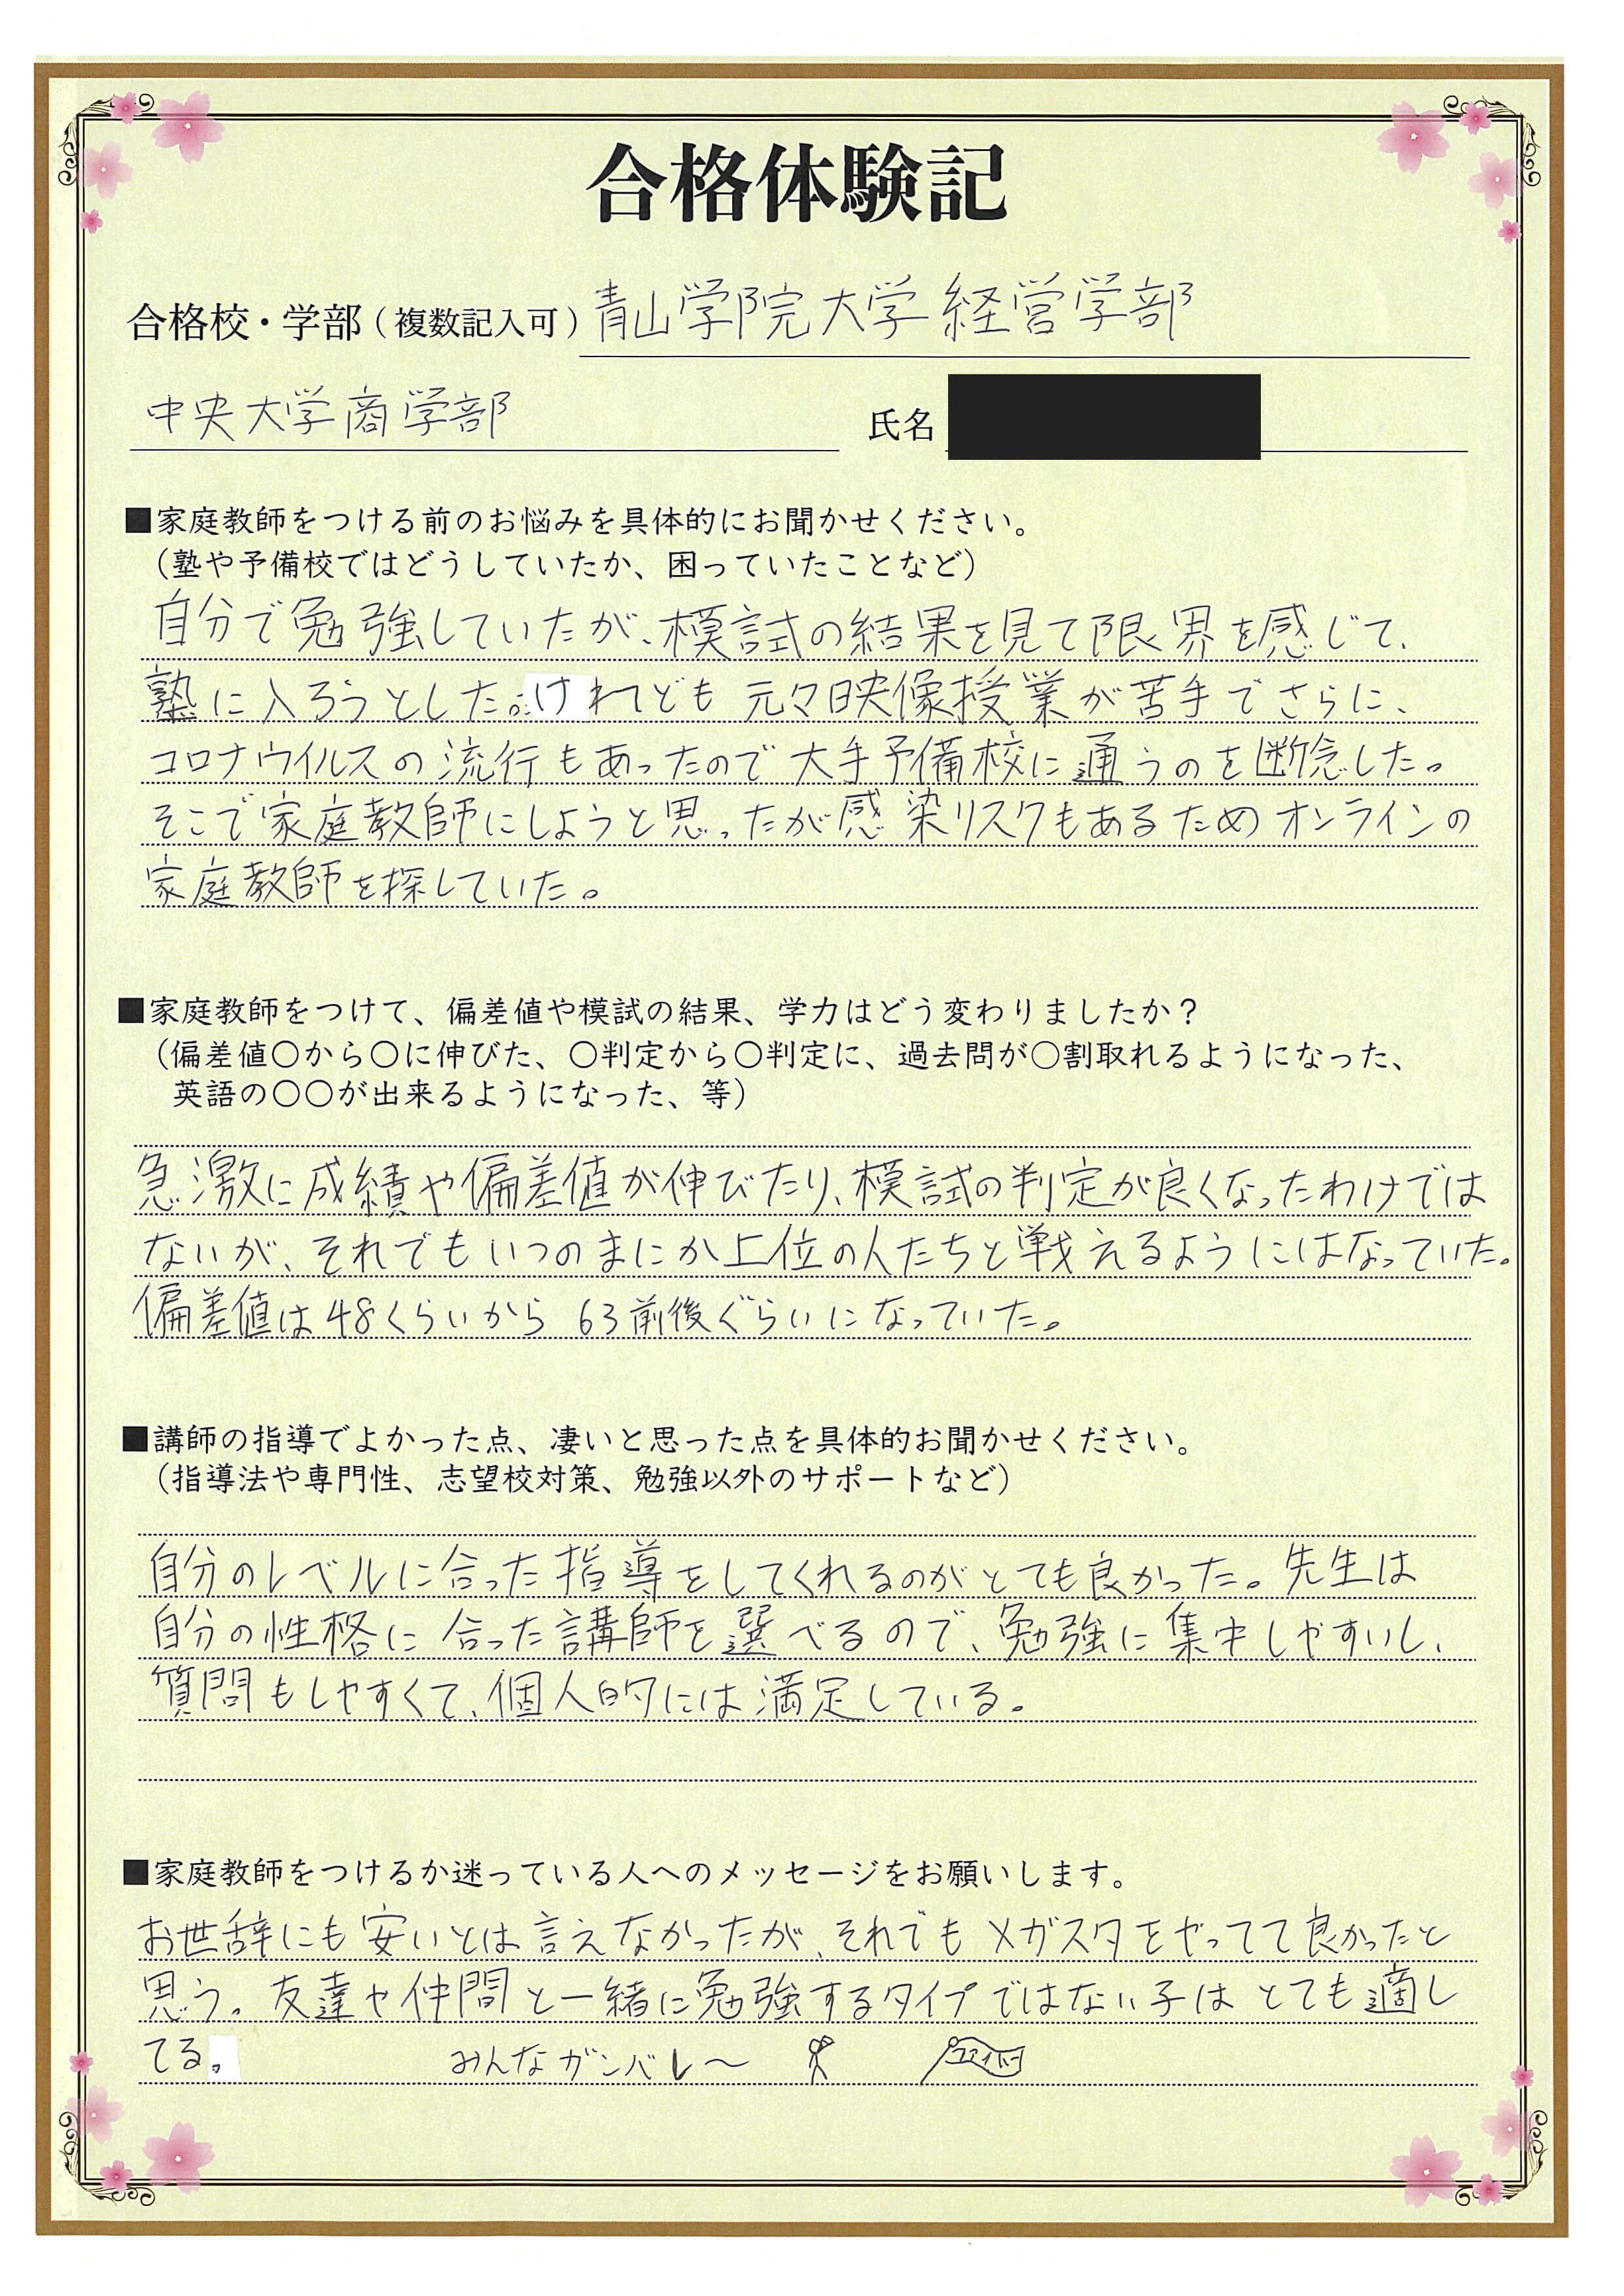 合格体験記
合格校・学部(複数記入可)青山学院大学経営学部
中央大学商学部 氏名
■家庭教師をつける前のお悩みを具体的にお聞かせください。
(塾や予備校ではどうしていたか、困っていたことなど)
自分で勉強していたが、模試の結果を見て限界を感じて、
塾に入ろうとした。けれども 元々映像授業が苦手でさらに、
コロナウイルスの流行もあったので大手予備校に通うのを断念した。
そこで家庭教師にしようと思ったが感染リスクもあるためオンラインの
家庭教師を探していた。
■家庭教師をつけて、偏差値や模試の結果、学力はどう変わりましたか？
(偏差値〇から〇に伸びた、〇判定から〇判定に、過去問が〇割取れるようになった、
英語の〇〇が出来るようになった、等)
急激に成績や偏差値が伸びたり、模試の判定が良くなったわけでは
ないが、それでもいつのまにか上位の人たちと戦えるようにはなっていた。
偏差値は48くらいから 63前後ぐらいになっていた。
■講師の指導でよかった点、凄いと思った点を具体的お聞かせください。
(指導法や専門性、志望校対策、勉強以外のサポートなど)
自分のレベルに合った指導をしてくれるのがとても良かった。先生は
自分の性格に合った講師を選べるので、勉強に集中しやすいし、
質問もしやすくて、個人的には満足している。
■家庭教師をつけるか迷っている人へのメッセージをお願いします。
お世辞にも安いとは言えなかったが、それでもメガスタをやってて良かったと
思う。友達や仲間と一緒に勉強するタイプではない子はとても適し
てる。 みんなガンバレ～